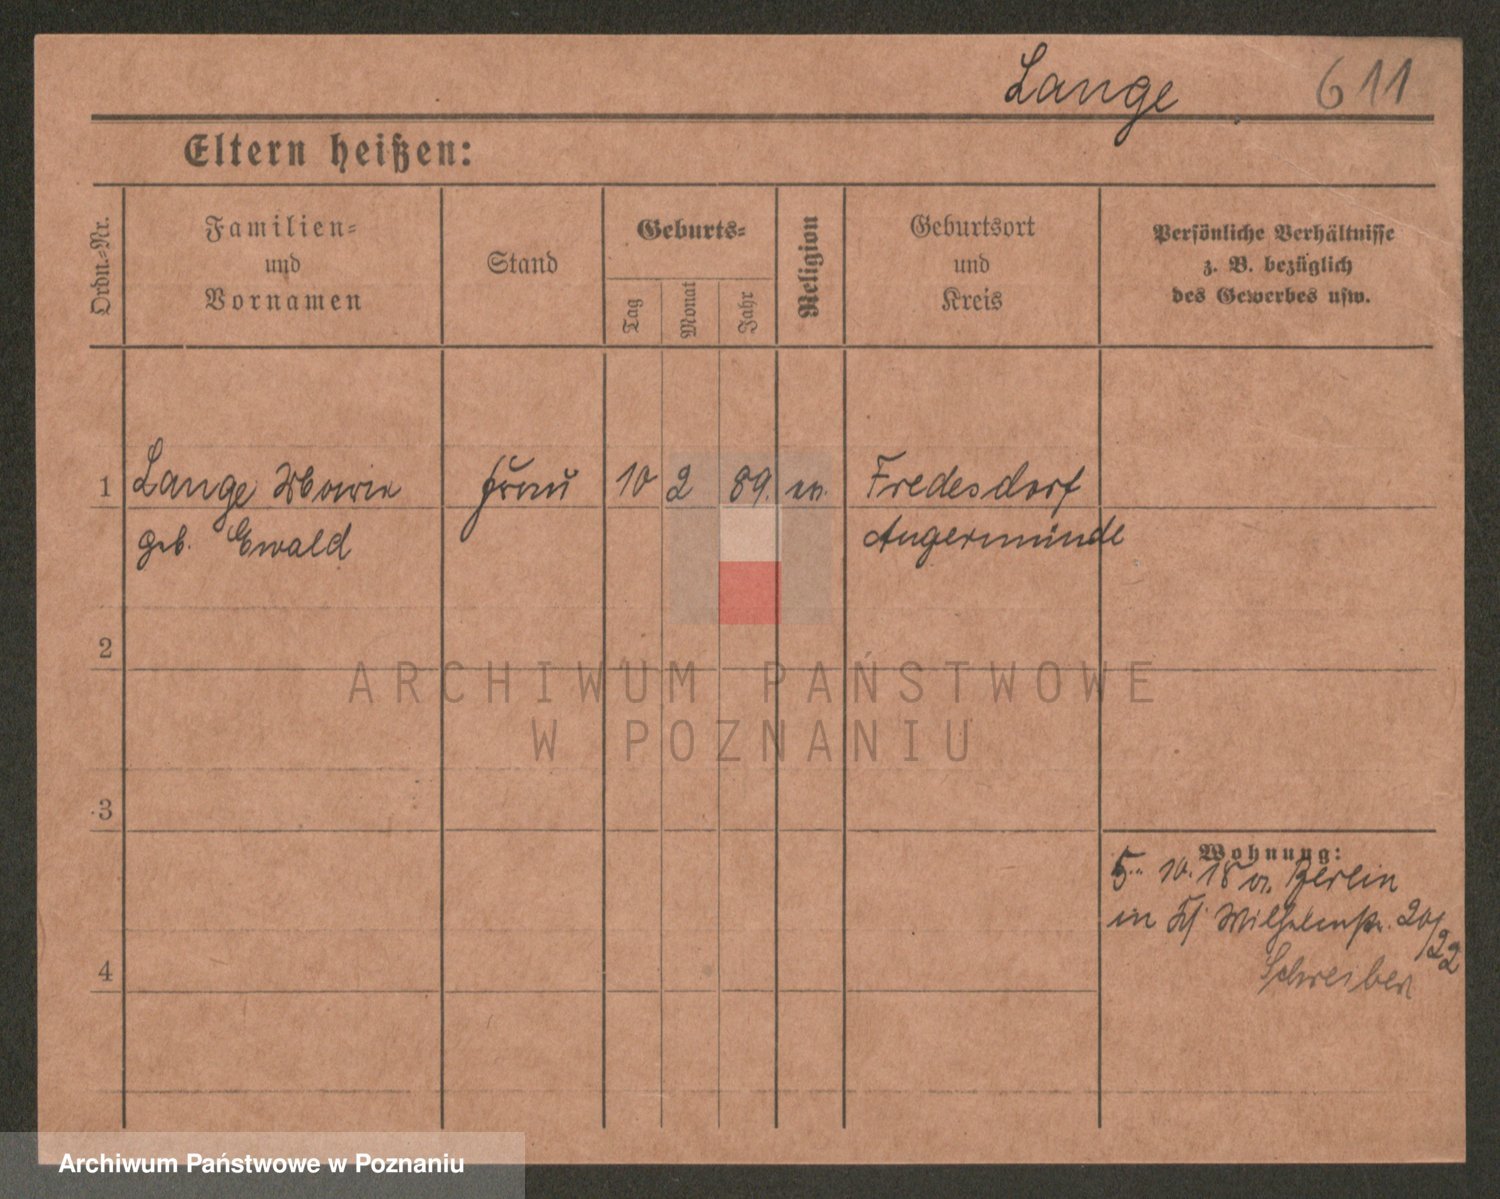 Lange 611
Eltern heißen:
Ordn.-Nr.
Familien- und Vornamen
Stand
Geburts-
Tag
Monat
Jahr
Religion
Geburtsort und Kreis
Persönliche Verhältnisse
z. B. bezüglich
des Gewerbes usw.
1 Lange Marie Frau 10 2 89. ev. Fredesdorf
geb. Ewald Angermünde
2
3
4
Wohnung:
5. 10. 18 v. Berlin
in Wilhelmstr. 20/22
Schreiber
ARCHIWUM PAŃSTWOWE
W POZNANIU
Archiwum Państwowe w Poznaniu